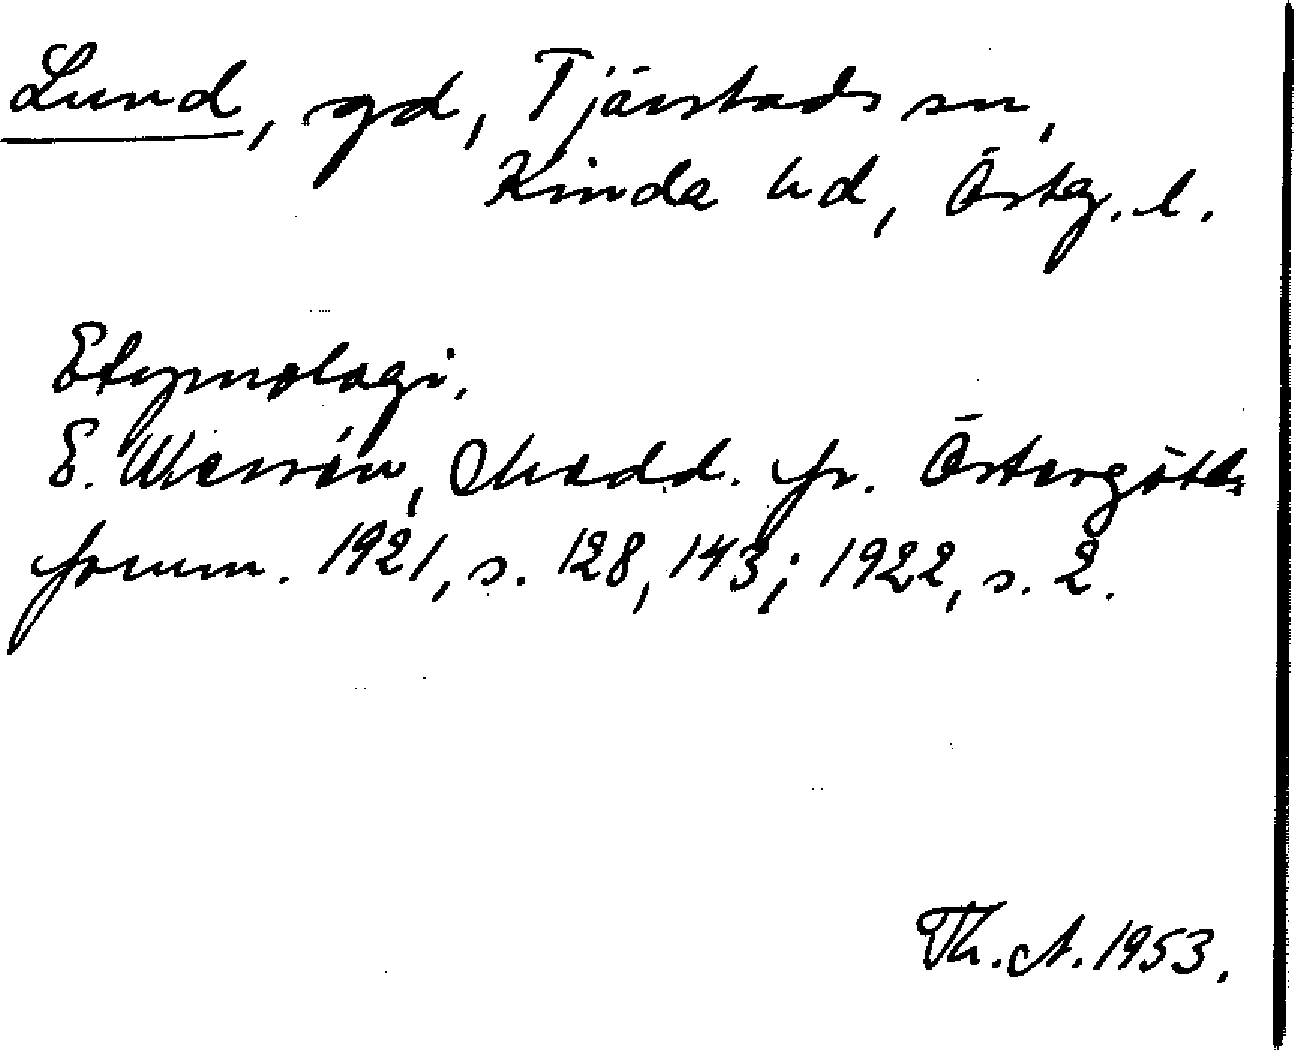 Lund, gd, Tjärstads sn,
Kinda hd, Östg. l.
Etymologi.
E. Wessén, Medd. fr. Östergötl:s
fornm. 1921, s. 128, 143; 1922, s. 2.
Th. A. 1953.